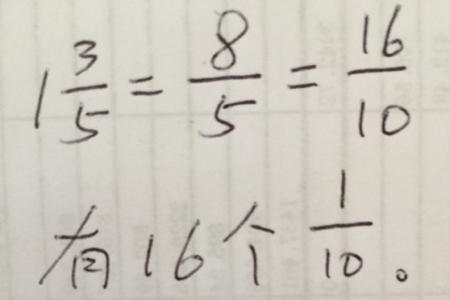 1 3/5 = 8/5 = 16/10
有16个 1/10。